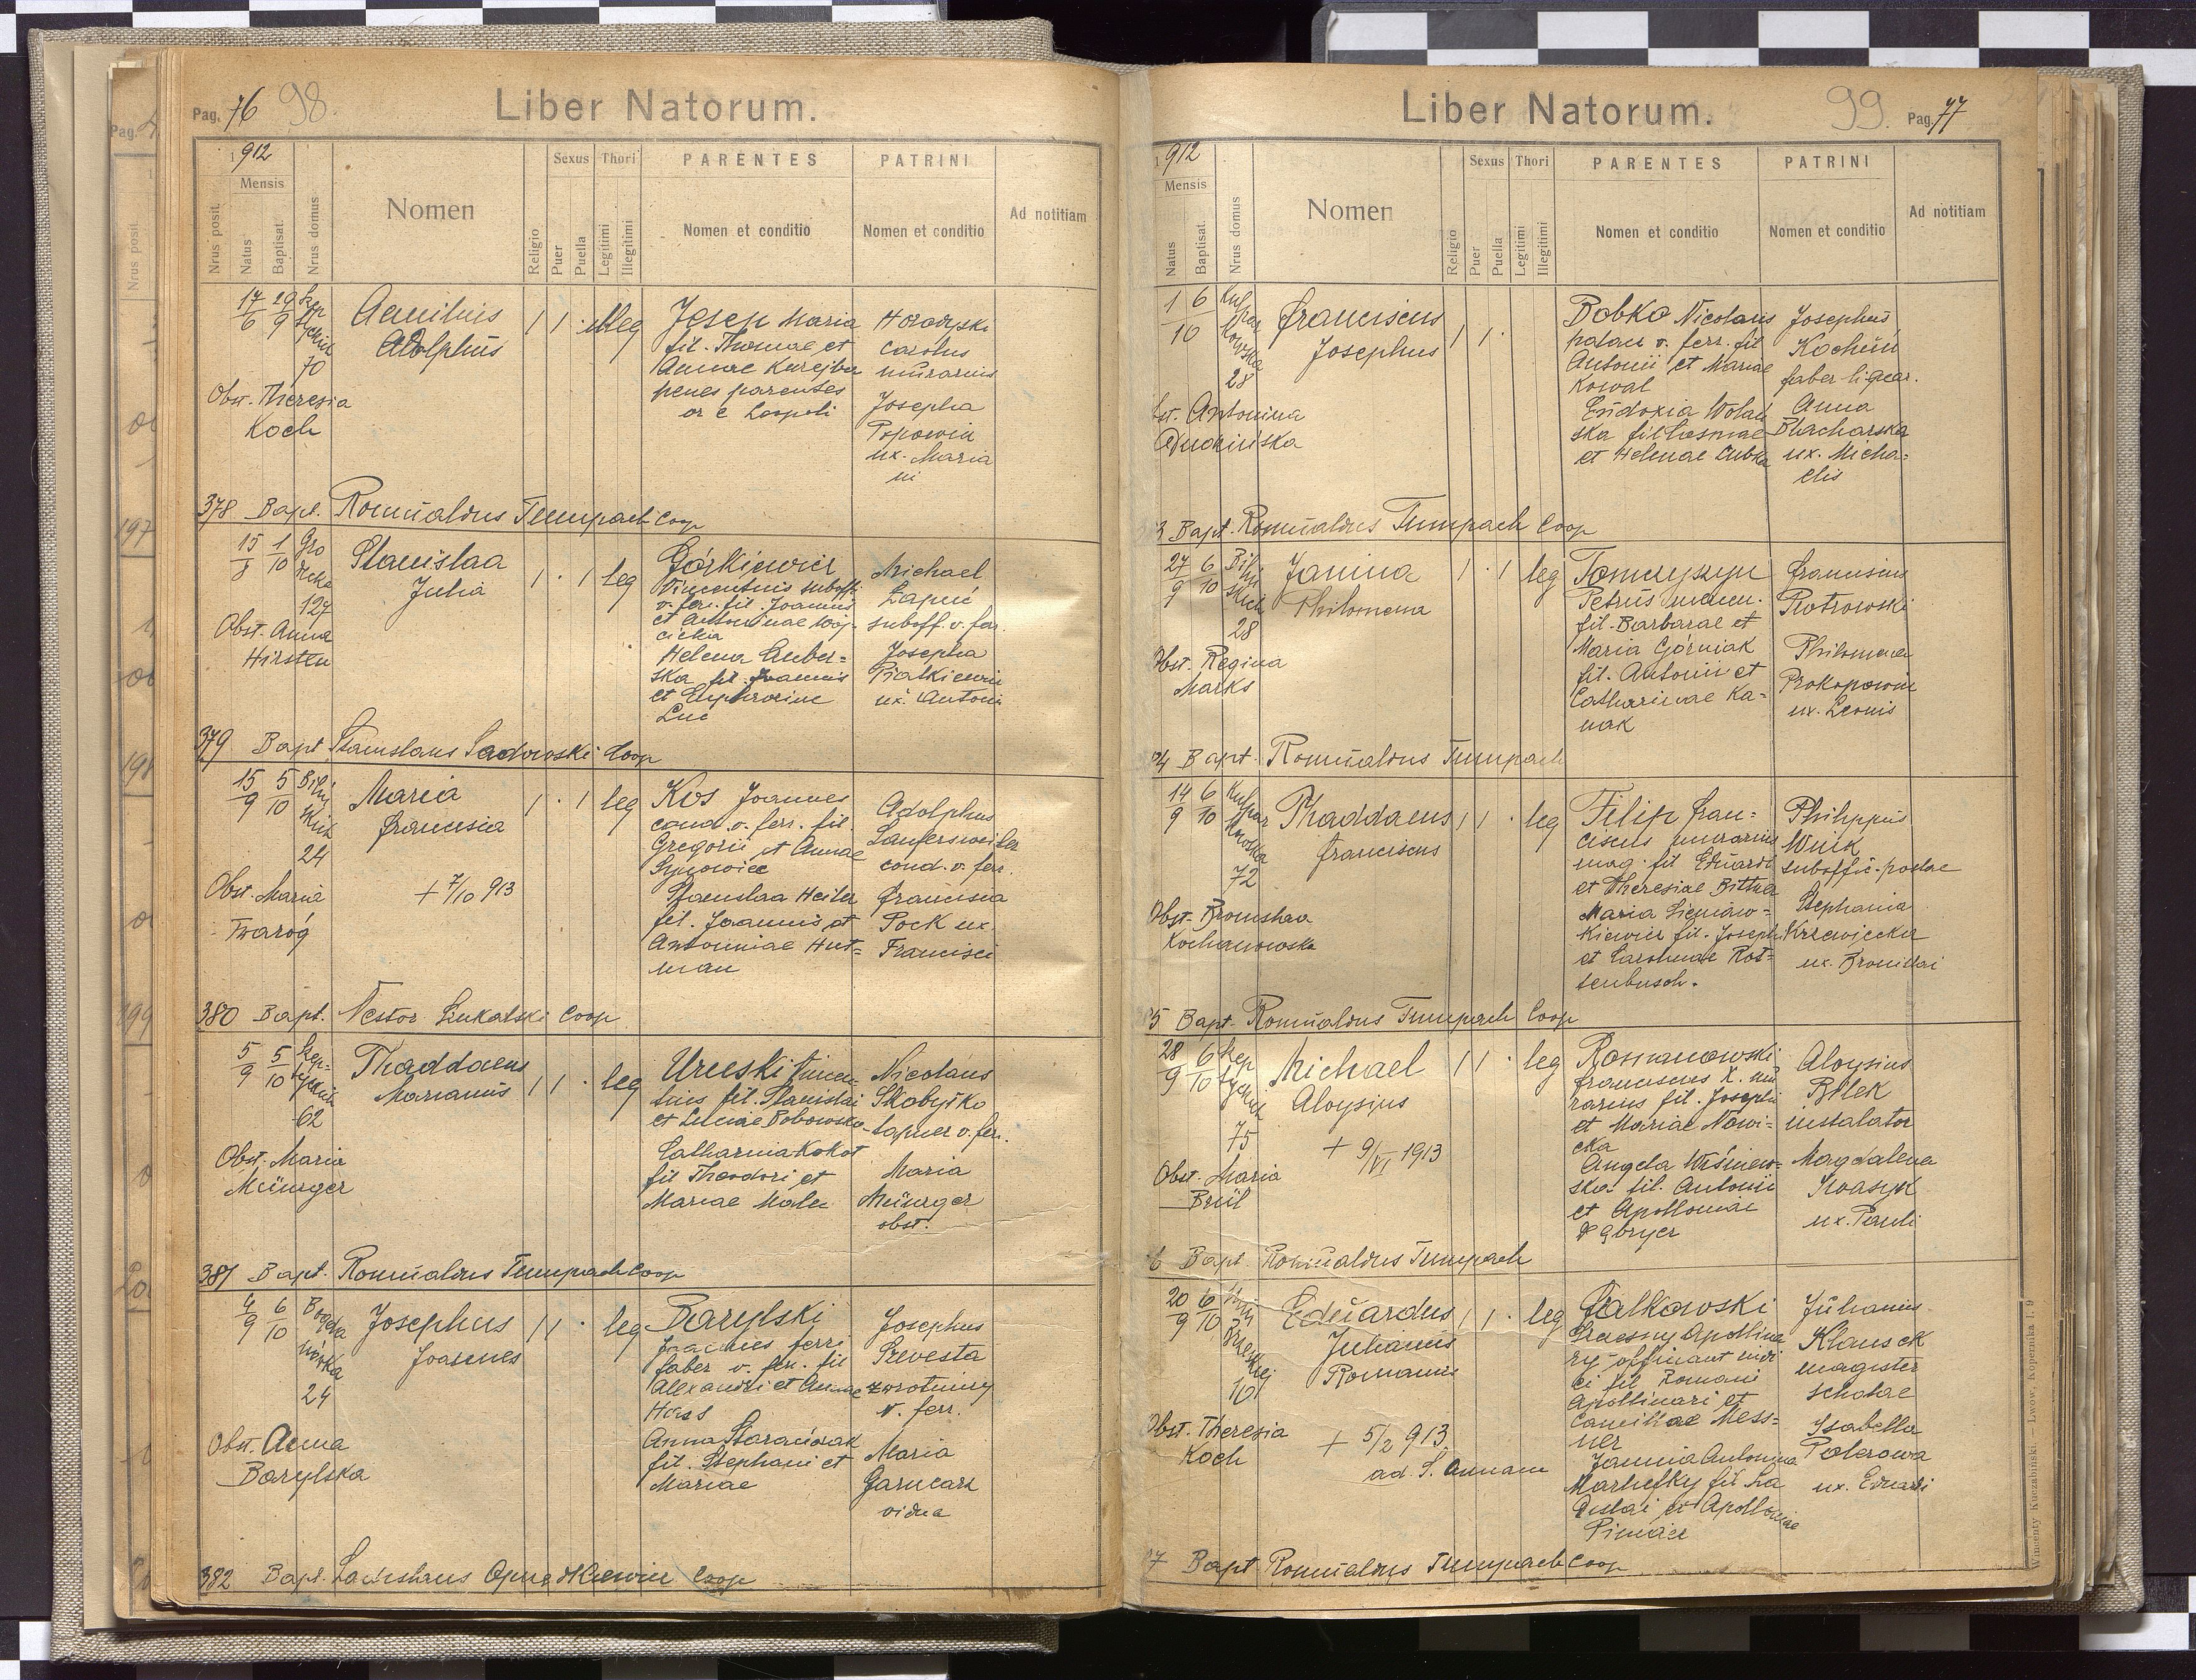 Pag. 76 98. Liber Natorum.
1912
Mensis
Nrus posit.
Natus
Baptisat.
Nrus domus
Nomen
Religio
Sexus
Puer
Puella
Thori
Legitimi
Illegitimi
PARENTES
Nomen et conditio
PATRINI
Nomen et conditio
Ad notitiam
17/6 29/9
70
Adolphus
1 1 · illeg
Josep Maria
fil. Thomae et
Annae
penes parentes
or e Leopoli
Carolus
murarius
Josepha
Popowicz
ux. Maria
ni
Obst. Theresia
Koch
378 Bapt. Romualdus Tumpach Coop
15/8 1/10 Gro
decka
127
Stanislaa
Julia
1 · 1 leg
Górkiewicz
Vincentius suboff.
v. fer. fil. Joannis
et Antoninae Woj-
cicka
Helena
ska fil. Joannis
et Euphrosine
Luc
Michael
Zapuc
suboff. v. fer.
Josepha
Piatkiewicz
ux. Antoni
Obst. Anna
Hirsten
379 Bapt Stanislaus Sadowski Coop
15/9 5/10 Biliń
skich
24
Maria
Francisia
1 · 1 leg
+ 7/10 913
Kos Joannes
cond. v. ferr. fil.
Gregorii et Annae
Synowiec
Stanislaa Heiler
fil. Joannis et
Antoniniae Hut=
man
Adolphus
Lanfersweiler
cond. v. ferr.
Francisia
Pock ux.
Francisci
Obst. Maria
Twaróg
380 Bapt. Nestor Coop
5/9 5/10 Szep=
tyckich
62
Thaddaeus
Marianus
1 1 · leg
Uruski Vincen-
tius fil. Stanislai
et Luciae Bobowska
Catharina Kokot
fil Theodori et
Mariae
Nicolaus
Skobyłko
v. fer.
Maria
Münzger
obst.
Obst. Maria
Münzger
381 Bapt. Romualdus Tumpach Coop
4/9 6/10 Bogda
nówka
24
Josephus
Joannes
1 1 · leg
Barylski
Joannes ferri
faber v. ferr. fil
Alexandri et Annae
Hass
Anna
fil. Stephani et
Mariae
Josephus
Szevesta
zwrotniczy
v. ferr.
Maria
Garncarz
vidua
Obst. Anna
Barylska
382 Bapt. Ladislaus Coop
Liber Natorum. 99. Pag. 77
1912
Mensis
Natus
Baptisat.
Nrus domus
Nomen
Religio
Sexus
Puer
Puella
Thori
Legitimi
Illegitimi
PARENTES
Nomen et conditio
PATRINI
Nomen et conditio
Ad notitiam
1/10 6 Kulpar
kowska
28
Franciscus
Josephus
1 1 ·
Bobko Nicolaus
v. ferr. fil
Antonii et Mariae
Kowal
Eudoxia
ska fil Cosmae
et Helenae
Josephus
faber lignar.
Anna
Blacharska
ux. Micha=
elis
Antonina
3 Bapt. Romualdus Tumpach Coop
27/9 6/10 Biliń
skich
28
Janina
Philomena
1 · 1 leg
Tomczyszyn
Petrus
fil. Barbarae et
Maria Górniak
fil. Antonii et
Catharinae Ka=
nak
Franciscus
Piotrowski
Philomena
Prokopowicz
ux. Leonis
Obst. Regina
Marks
4 Bapt. Romualdus Tumpach
14/9 6/10 Kulpar
kowska
72
Thaddaeus
Franciscus
1 1 · leg
Filip Fran=
ciscus murarius
mag. fil Eduardi
et Theresiae Bittner
Maria
kiewicz fil. Josephi
et Carolinae Rot=
tenbusch.
Philippus
Wnik
suboffic. postae
Stephania
Krzewiecka
ux. Bronislai
Obst. Bronislaa
Kochanowska
5 Bapt. Romualdus Tumpach Coop
28/9 6/10 Szep
tyckich
75
Michael
Aloysius
1 1 · leg
+ 9/VI 1913
Romanowski
Franciscus X. mu
rarius fil. Josephi
et Mariae Nowi=
cka
Angela Wiśniew=
ska fil. Antonii
et Apolloniae
Aloysius
Bilek
instalator
Magdalena
Iwaszyk
ux. Pauli
Obst. Maria
Brül
6 Bapt. Romualdus Tumpach
20/9 6/10
10
Eduardus
Julianus
Romanus
1 1 · leg
+ 5/2 913
ad. S. Annam
Falkowski
Szczesny Apollina
ry
fil Romani
Apollinari et
Camillae Mess=
ner
Jannia Antonina
fil La
dislai et Apolloniae
Julianus
magister
scholae
Isabella
ux. Eduardi
Obst. Theresia
Koch
7 Bapt Romualdus Tumpach Coop
Wincenty Kuczabiński. — Lwów, Kopernika l. 9